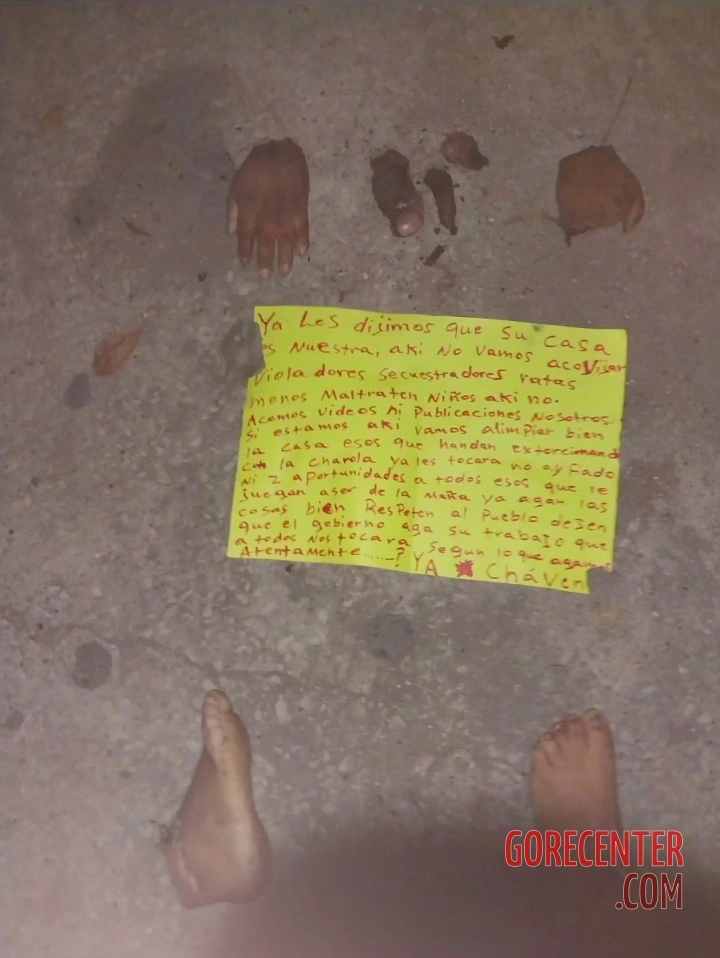 Ya Les dijimos que su casa
es Nuestra, aki No vamos acovijar
Violadores secuestradores ratas
menos Maltraten Niños aki no.
Acemos videos Ni Publicaciones Nosotros
Si estamos aki vamos alimpiar bien
la casa esos que handan extorcionando
con la charola ya les tocara no ay Fado
Ni 2 aportunidades a todos esos que se
juegan aser de la Maña ya agan las
cosas bien Respeten al Pueblo dejen
que el gobierno aga su trabajo que
a todos Nos tocara segun lo que agamos
Atentamente......? YA Cháven
GORECENTER
.COM